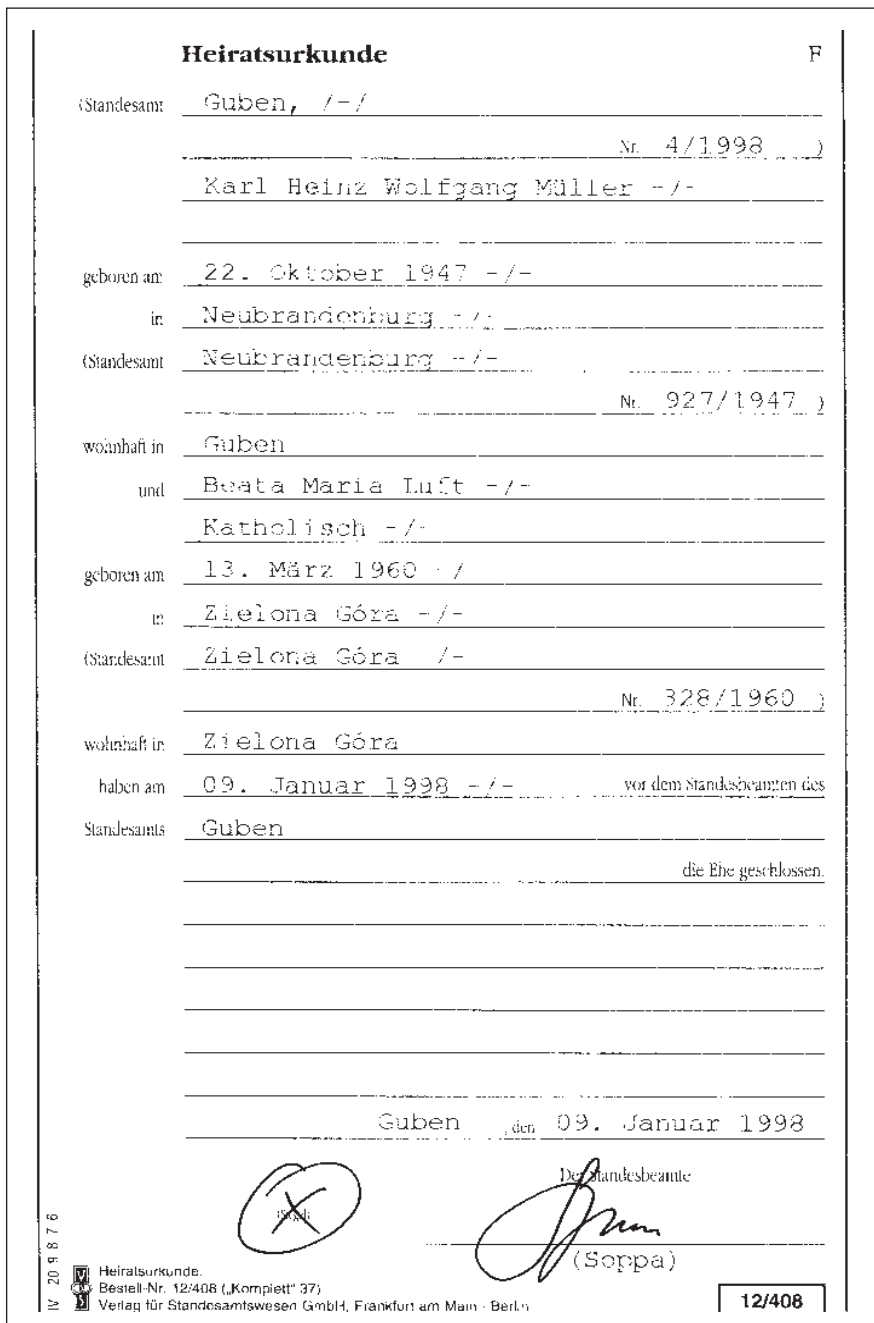 Heiratsurkunde F
(Standesamt Guben, /-/
Nr. 4/1998 )
Karl Heinz Wolfgang Müller -/-
geboren am 22. Oktober 1947 -/-
in Neubrandenburg -/-
(Standesamt Neubrandenburg -/-
Nr. 927/1947 )
wohnhaft in Guben
und Beata Maria Luft -/-
Katholisch -/-
geboren am 13. März 1960 -/
in Zielona Góra -/-
(Standesamt Zielona Góra /-
Nr. 328/1960 )
wohnhaft in Zielona Góra
haben am 09. Januar 1998 -/- vor dem Standesbeamten des
Standesamts Guben
die Ehe geschlossen.
Guben , den 09. Januar 1998
Der Standesbeamte
(Siegel)
(Soppa)
IV 209876
Heiratsurkunde.
Bestell-Nr. 12/408 („Komplett“ 37)
Verlag für Standesamtswesen GmbH, Frankfurt am Main · Berlin
12/408